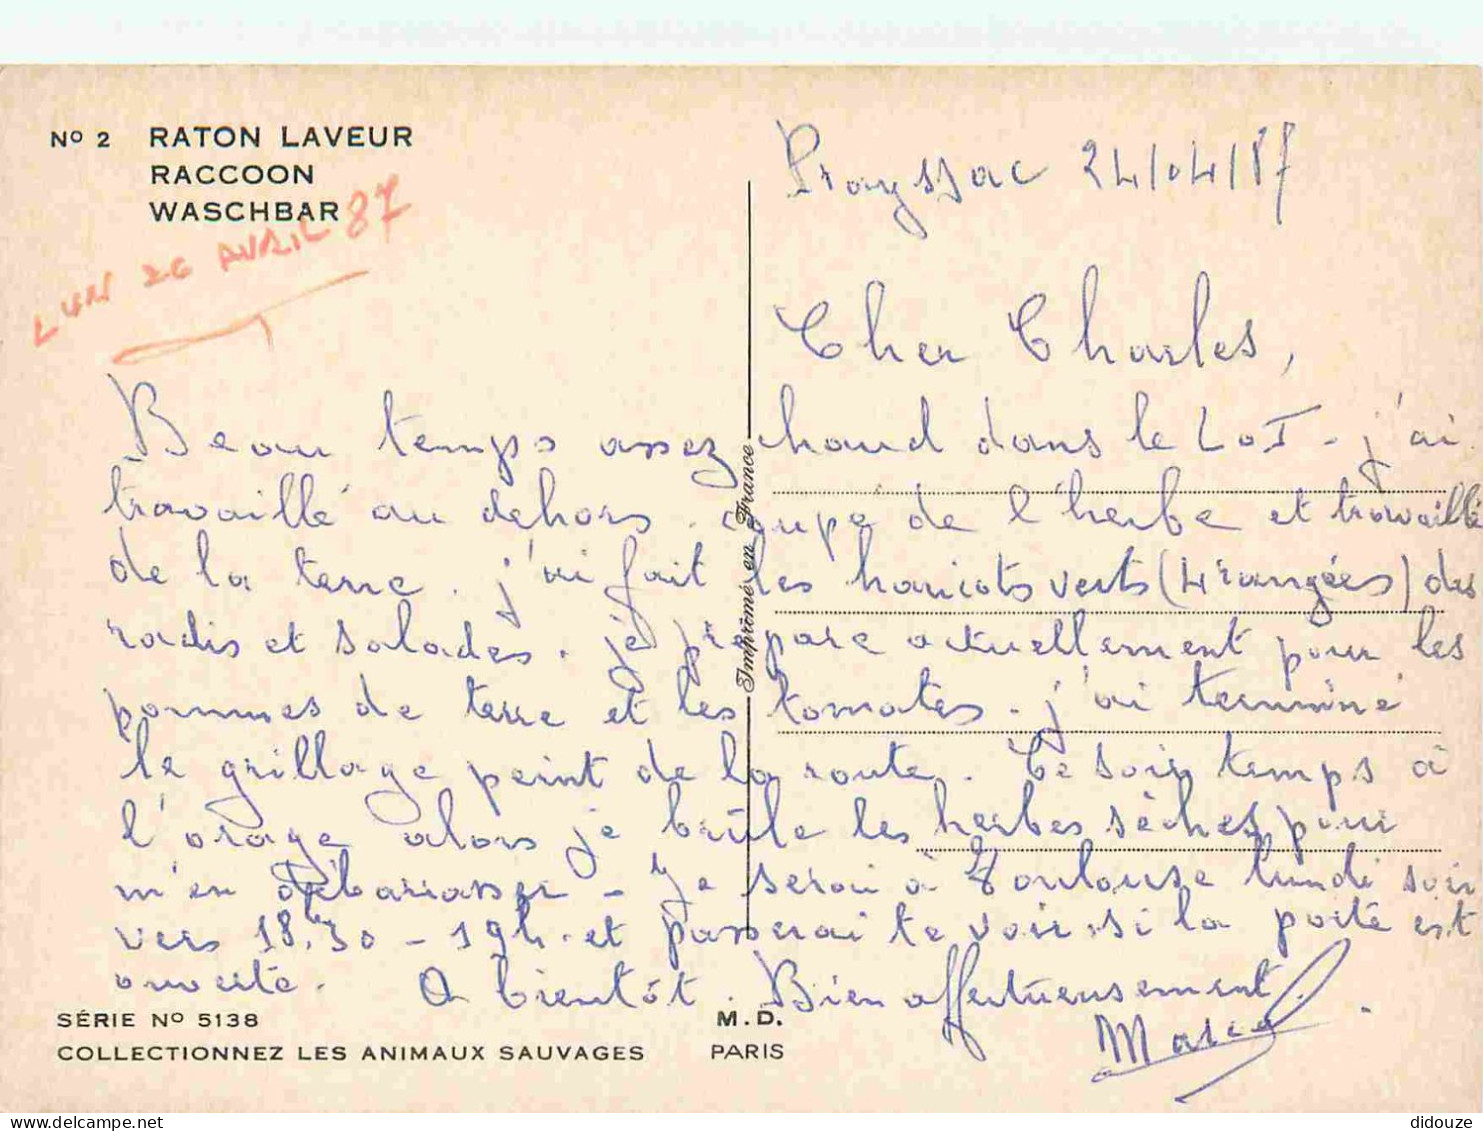 No 2 RATON LAVEUR
RACCOON
WASCHBAR
LUN 26 AVRIL 87
Prayssac 24/04/87
Cher Charles,
Beau temps assez chaud dans le LoT - j'ai
travaillé au dehors. coupé de l'herbe et travaillé
de la terre. j'ai fait les haricots verts (4 rangées) des
radis et salades. je prépare actuellement pour les
pommes de terre et les tomates. j'ai terminé
le grillage peint de la route. Ce soir temps à
l'orage alors je brûle les herbes sèches pour
m'en débarrasser - Je serai à Toulouse lundi soir
vers 18h30 - 19h. et passerai te voir si la porte est
ouverte. A bientôt. Bien affectueusement.
Marcel
Imprimé en France
SÉRIE No 5138
COLLECTIONNEZ LES ANIMAUX SAUVAGES
M.D.
PARIS
didouze